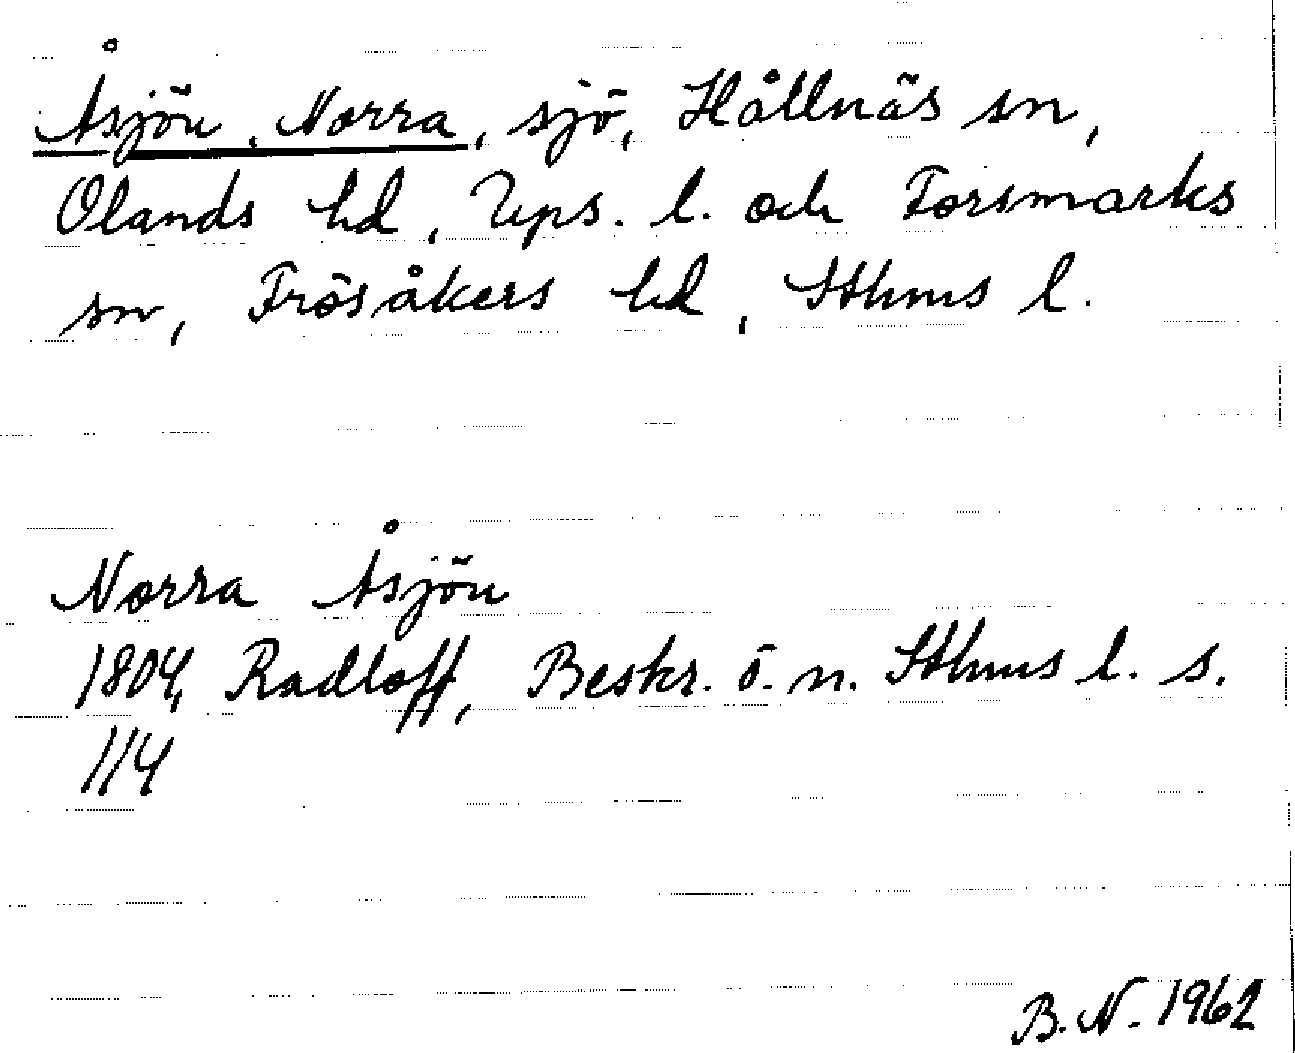 Åsjön, Norra, sjö, Hållnäs sn,
Olands hd, Ups. l. och Forsmarks
sn, Frösåkers hd, Sthms l.
Norra Åsjön
1804, Radloff, Beskr. ö. n. Sthms l. s.
114
B. N. 1962